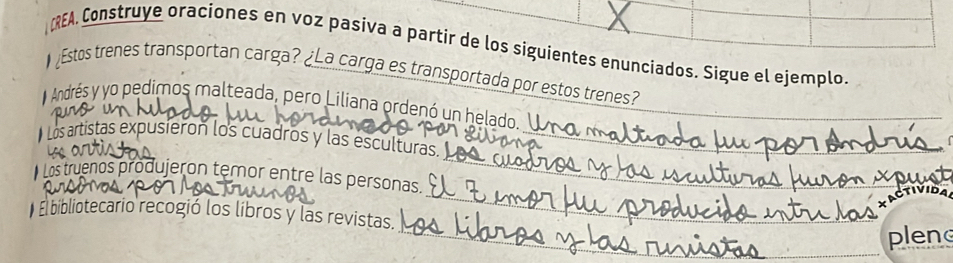 CREA. Construye oraciones en voz pasiva a partir de los siguientes enunciados. Sigue el ejemplo.
¿Estos trenes transportan carga? ¿La carga es transportada por estos trenes?
Andrés y yo pedimos malteada, pero Liliana ordenó un helado. Una malteada fue por Andrés
pero un helado fue hordenado por Liliana
Los artistas expusieron los cuadros y las esculturas. Los cuadros y las esculturas fueron
los artistas
Los truenos produjeron temor entre las personas. El temor fue producido entre las
personas por los truenos
+ACTIVIDA
El bibliotecario recogió los libros y las revistas. Los libros y las revistas
pleno